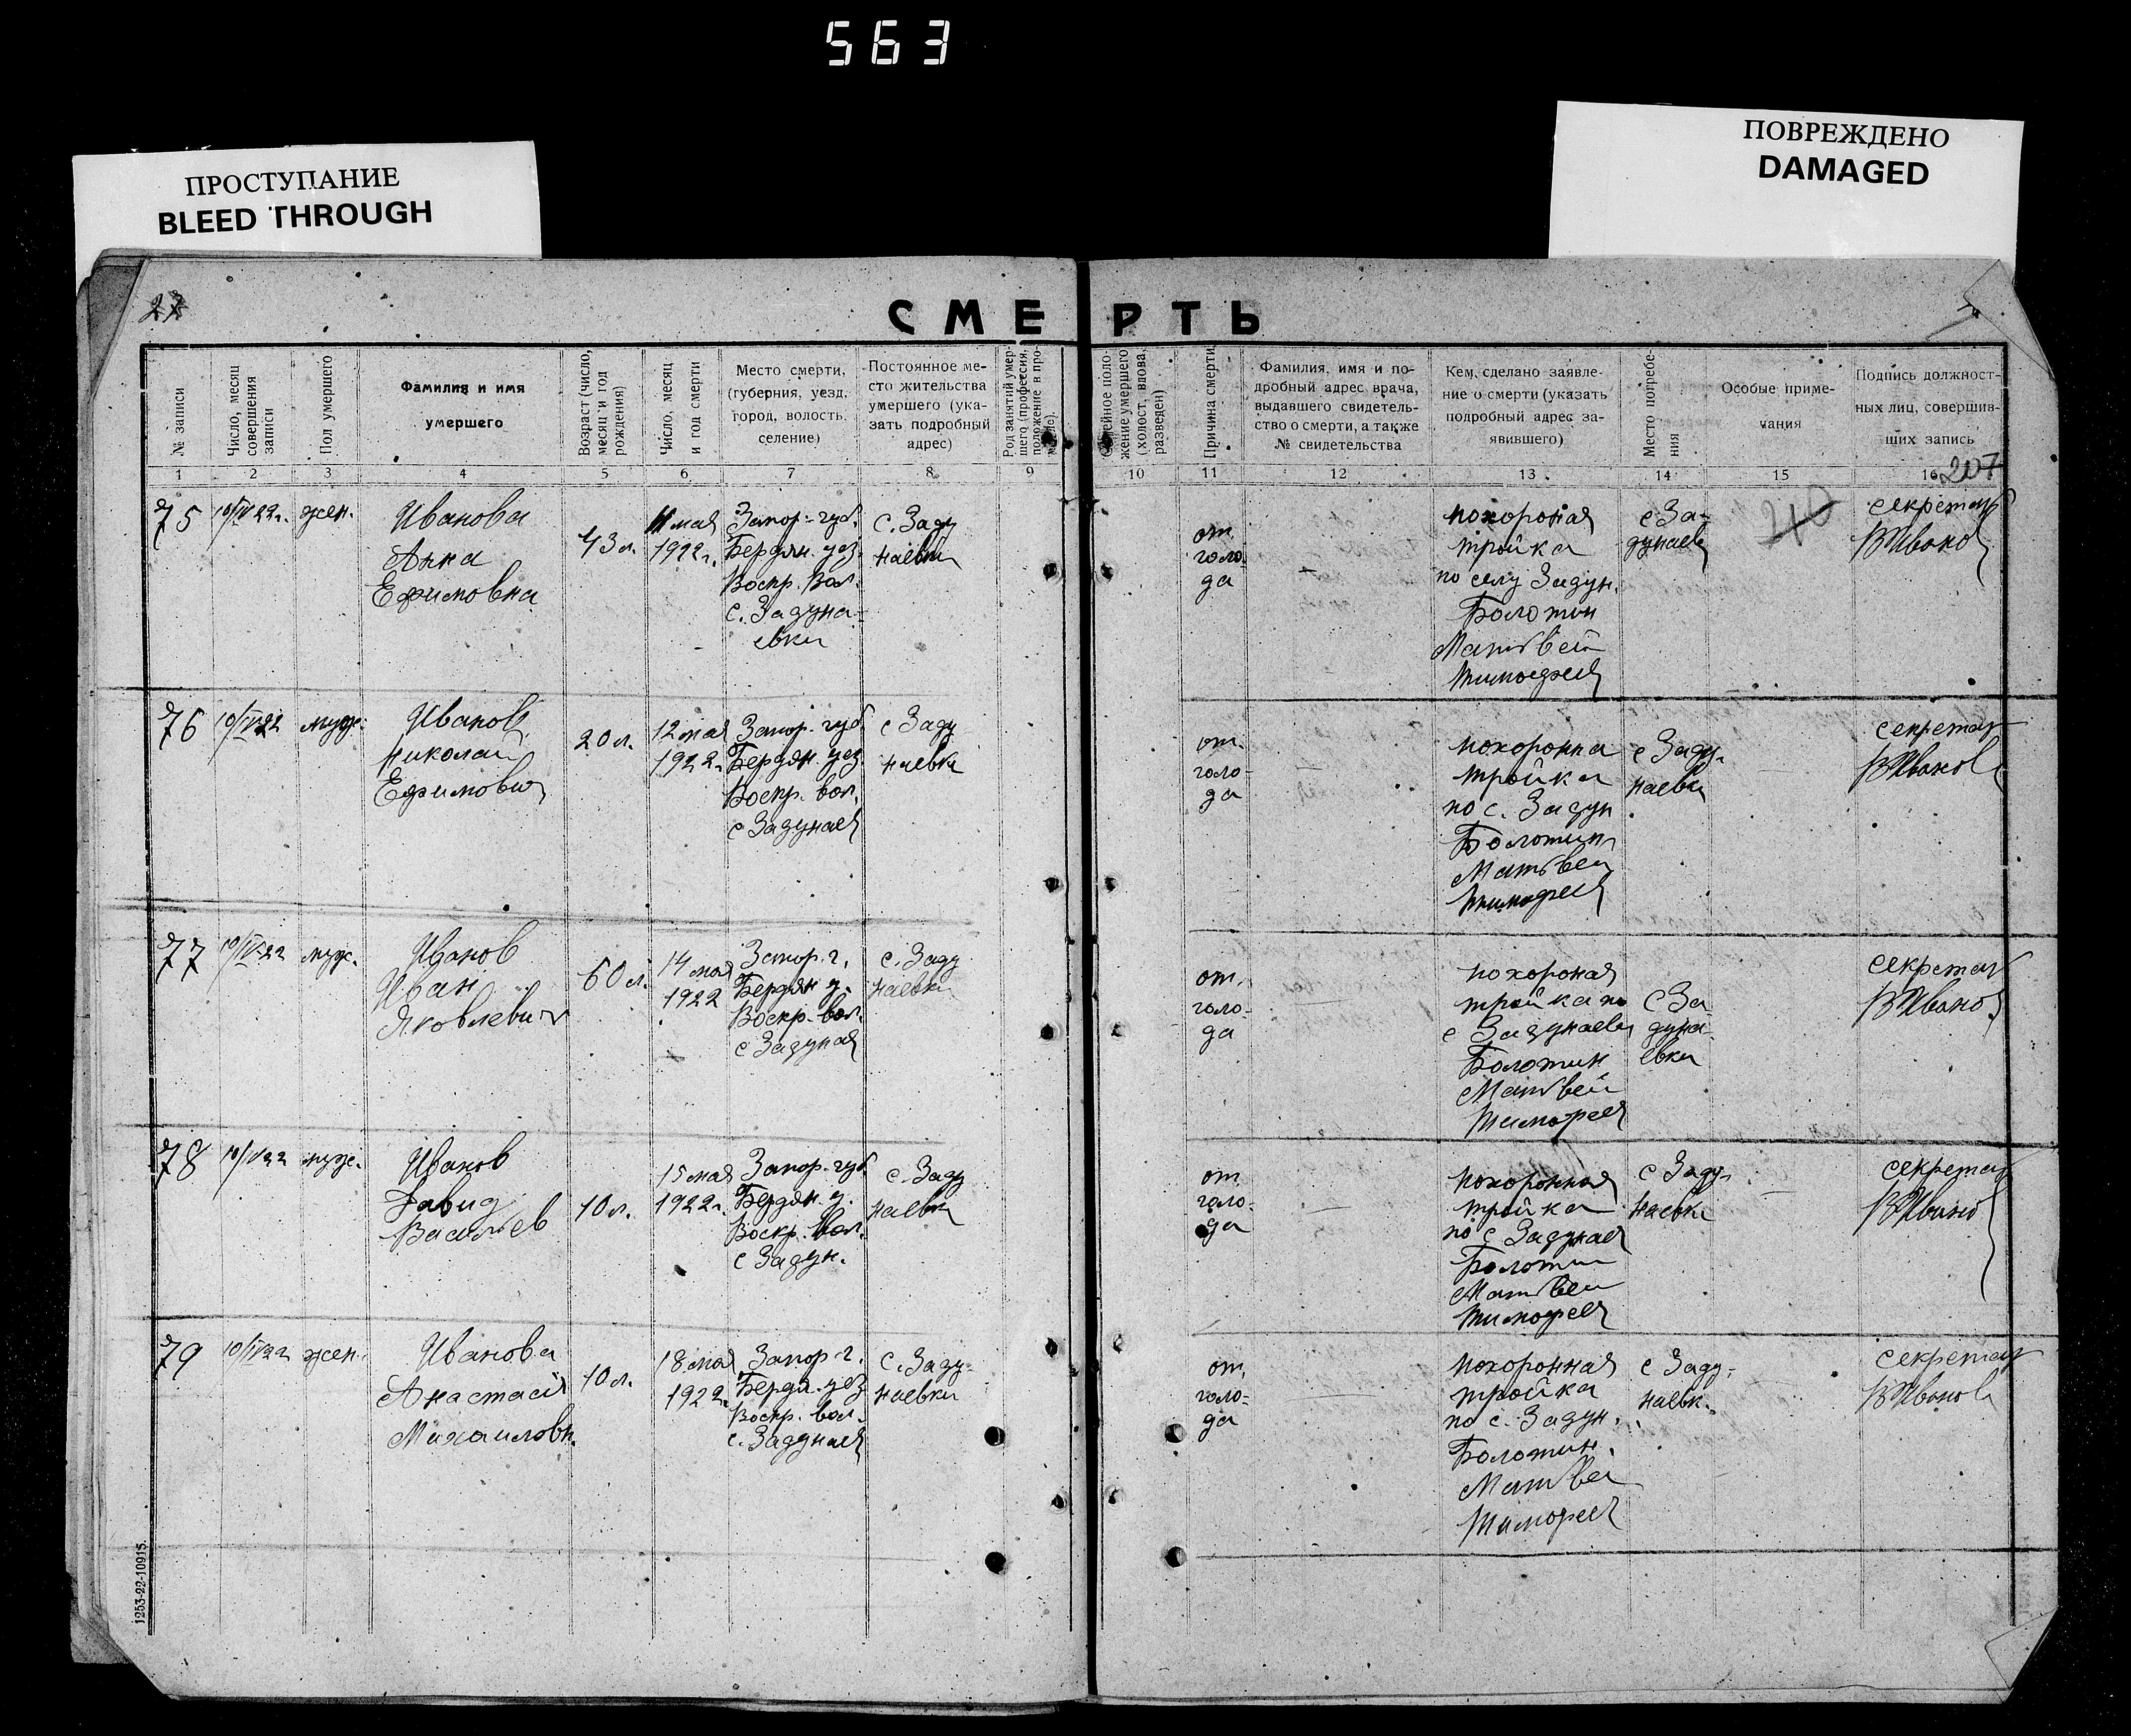 563
ПРОСТУПАНИЕ
BLEED THROUGH
ПОВРЕЖДЕНО
DAMAGED
СМЕРТЬ
№ записи
Число, месяц
совершения
записи
Пол умершего
Фамилия и имя
умершего
Возраст (число,
месяц и год
рождения)
Число, месяц
и год смерти
Место смерти,
(губерния, уезд,
город, волость,
селение)
Постоянное ме-
сто жительства
умершего (ука-
зать подробный
адрес)
Род занятий умер-
шего (профессия,
положение в про-
Семейное поло-
жение умершего
(холост, вдова,
разведен)
Причина смерти
Фамилия, имя и по-
дробный адрес врача,
выдавшего свидетель-
ство о смерти, а также
№ свидетельства
Кем, сделано заявле-
ние о смерти (указать
подробный адрес за-
явившего)
Место погребе-
ния
Особые приме-
чания
Подпись должност-
ных лиц, совершив-
ших запись
1 2 3 4 5 6 7 8 9 10 11 12 13 14 15 16
207
75
жен.
Иванова
Анна
Ефимовна
43 л.
11 мая
1922г.
Запор. губ.
Бердян. уез.
Воскр. вол.
с. Задуна-
евки
с. Заду
наевки
от
голо-
да
похороная
тройка
по селу Задун.
Болотин
Матвей
с За-
дунаев
секретар
ВИванов
76
муж.
Иванов
Николай
Ефимович
20 л.
12 мая
1922г.
Запор. губ
Бердян. уез.
Воскр. вол.
с Задунаев
с Заду
наевки
от
голо-
да
похоронна
тройка
по с. Задун
Болотин
Матвей
с Заду-
наевки
секретар
ВИванов
77
муж.
Иванов
Иван
Яковлевич
60 л.
14 мая
1922
Запор. г.
Бердян у.
Воскр. вол.
с Задуная
с. Заду
наевки
от
голо-
да
похороная
тройка по
с Задунаевки
Болотин
Матвей
с За
дуна-
евки
секретар
ВИванов
78
муж.
Иванов
Давид
Васильев
10 л.
15 мая
1922г.
Запор. губ
Бердян. у.
Воскр. вол.
с Задун.
с. Заду
наевки
от
голо-
да
похоронная
тройка
по с Задунаев
Болотин
Матвей
с Заду-
наевки
секретар
ВИванов
79
жен.
Иванова
Анастасия
Михаиловн.
10 л.
18 мая
1922.
Запор. г.
Бердя. уез
Воскр. вол.
с. Задунаев
с. Заду-
наевки
от
голо-
да
похоронная
тройка
по с. Задун.
Болотин.
Матвей
с Заду-
наевк.
секретар
ВИванов
1253-22-10915.